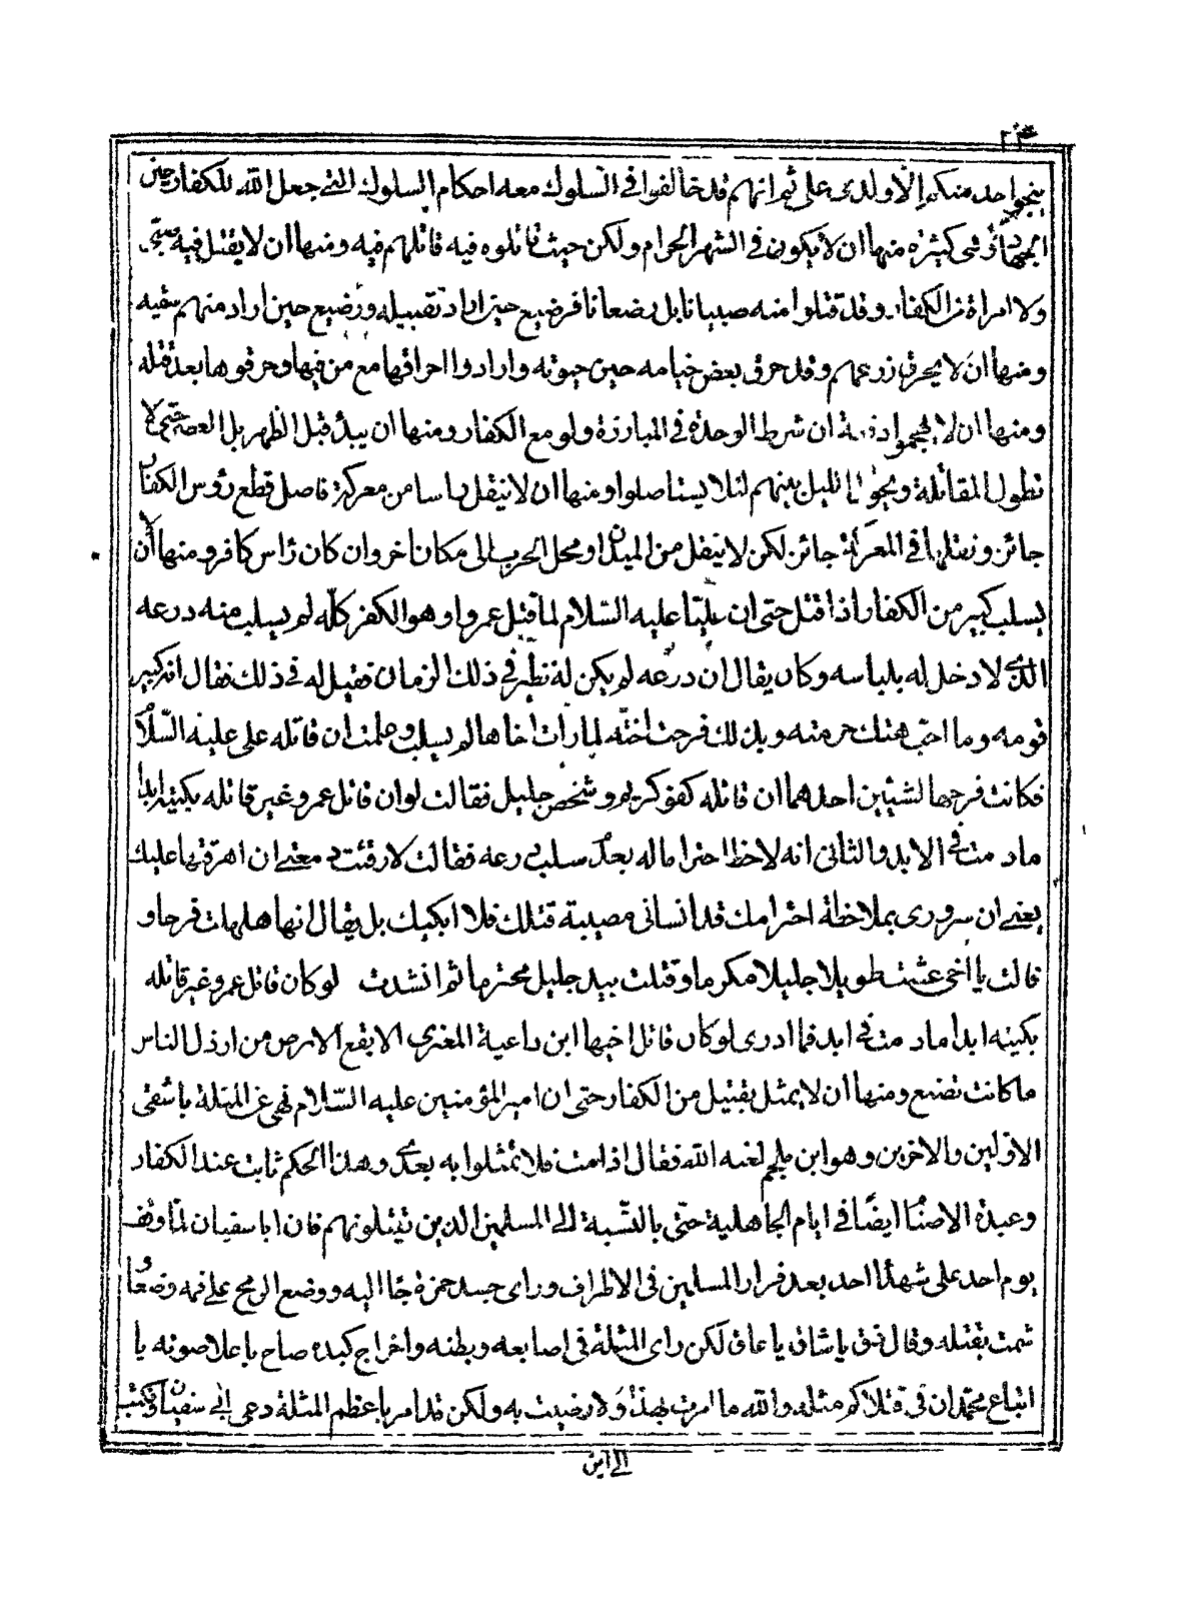 ينجوا حد منكم الا ولدى على ثم انهم قد خالفوا فى السلوك معه احكام السلوك التى جعل الله للكفار حين
الجهاد وهى كثيرة منها ان لا يكون فى الشهر الحرام ولكن حيث قاتلوه فيه قاتلهم فيه ومنها ان لا يقتل فيه صبى
ولا امراة من الكفار وقد قتلوا منه صبيانا بل رضعانا فرضيع حين اراد تقبيله ورضيع حين اراد منهم سقيه
ومنها ان لا يحرق زرعهم وقد حرق بعض خيامه حين حيوته وارادوا احراقها مع من فيها وحرقوها بعد قتله
ومنها ان لا يهجموا دفعة ان شرط الوحدة فى المبارزة ولو مع الكفار ومنها ان يبدء قبل الظهر بل العصر حتى لا
تطول المقاتلة ويحول الليل بينهم لئلا يستاصلوا ومنها ان لا ينقل راسا من معركة فاصل قطع رؤس الكفار
جائز ونقلها فى المعركة جائز لكن لا ينقل من الميدان او محل الحرب الى مكان اخر وان كان راس كافر ومنها ان لا
يسلب كبير من الكفار اذا قتل حتى ان عليا عليه السلام لما قتل عمروا وهو الكفر كله لم يسلب منه درعه
الذى لا دخل له بلباسه وكان يقال ان درعه لم يكن له نظير فى ذلك الزمان فقيل له فى ذلك فقال انه كبير
قومه وما احب هتك حرمته وبذلك فرحت اخته لما رات اخاها لم يسلب وعلمت ان قاتله على عليه السلام
فكانت فرحها لشيئين احدهما ان قاتله كفو كريم وشخص جليل فقالت لو ان قاتل عمرو غير قاتله بكيته ابدا
ما دمت فى الابد والثانى انه لاحظ احتراما له بعدم سلب درعه فقالت لا رقئت دمعتى ان اهرقتها عليك
يعنى ان سرورى بملاحظة احترامك قد انسانى مصيبة قتلك فلا ابكيك بل يقال انها هلهلت فرحا و
قالت يا اخى عشت طويلا جليلا مكرما وقتلت بيد جليل محترما ثم انشدت لو كان قاتل عمرو غير قاتله
بكيته ابدا ما دمت فى ابد فما ادرى لو كان قاتل اخيها ابن راعية المعزى الا بقع الابرص من ارذل الناس
ما كانت تصنع ومنها ان لا يمثل بقتيل من الكفار حتى ان امير المؤمنين عليه السلام نهى عن المثلة باشقى
الاولين والاخرين وهو ابن ملجم لعنه الله فقال اذا مت فلا تمثلوا به بعدى وهذا الحكم ثابت عند الكفار
وعبدة الاصنام ايضا فى ايام الجاهلية حتى بالنسبة الى المسلمين الذين يقتلونهم فان ابا سفيان لما وقف
يوم احد على شهداء احد بعد فرار المسلمين فى الاطراف وراى جسد حمزة جاء اليه ووضع الرمح على فمه وضعا و
شمت بقتله وقال ذق يا شاق يا عاق لكن راى المثلة فى اصابعه وبطنه واخراج كبده صاح باعلا صوته يا
اتباع محمد ان فى قتلاكم مثلة والله ما امرت بهذه ولا رضيت به ولكن قد امر باعظم المثلة دعى ابى سفيان وكتب
الى ابن